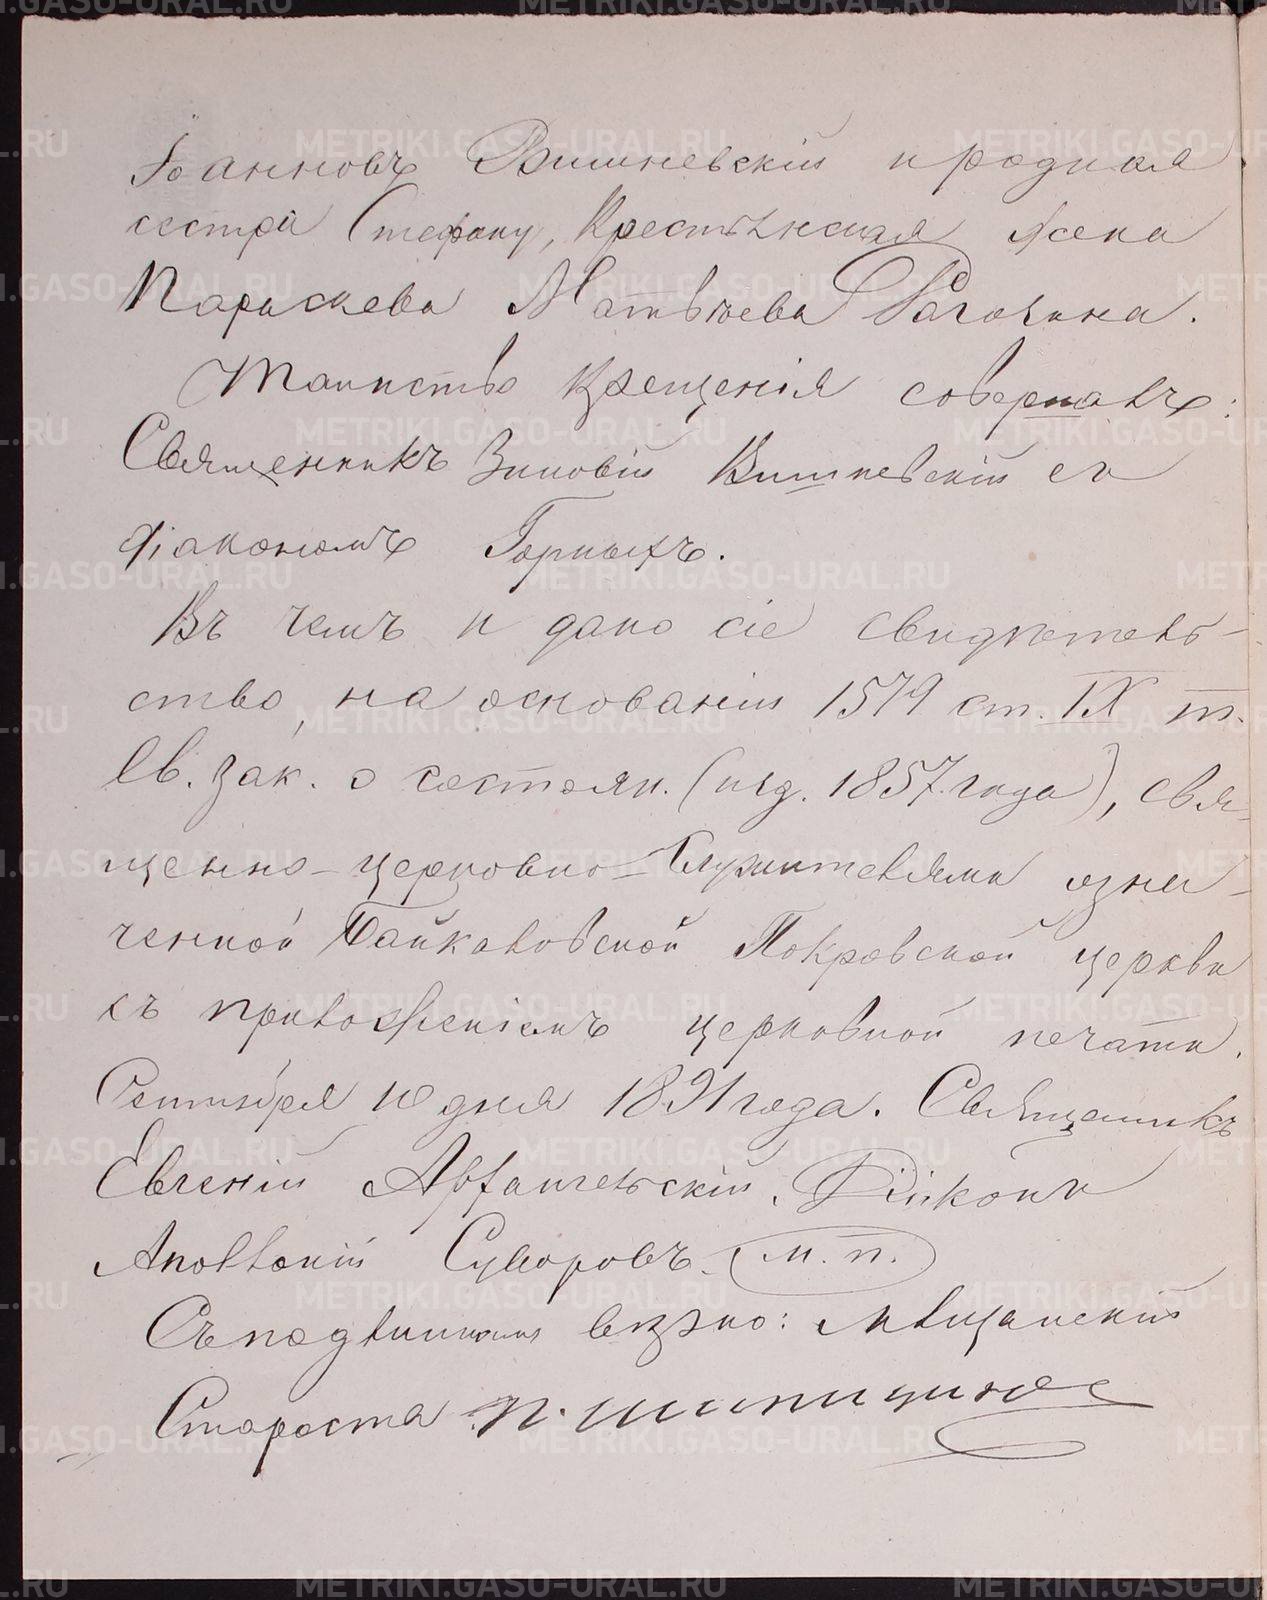 Іоанновъ Вишневскій и родная
сестра Стефану, Крестьянская жена
Параскева Матвѣева Рагозина.
Таинство Крещенія совершалъ:
Священникъ Зиновій Вишневскій съ
діакономъ Горныхъ.
Въ чемъ и дано сіе свидѣтель-
ство, на основаніи 1579 ст. IX т.
Св. Зак. о состоян. (изд. 1857 года), свя-
щенно-церковно-служителями озна-
ченной Байкаловской Покровской церкви
съ приложеніемъ церковной печати.
Сентября 10 дня 1891 года. Священникъ
Евгеній Архангельскій. Діаконъ
Аполлоній Суворовъ. м. п.
Съ подлиннымъ вѣрно: Мѣщанскій
Староста П. Шипицинъ